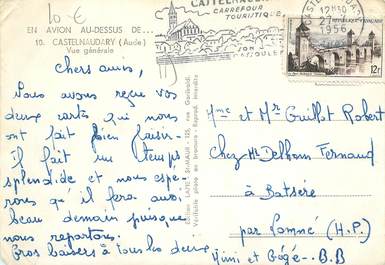 10 €
EN AVION AU-DESSUS DE...
10. CASTELNAUDARY (Aude)
Vue générale
CASTELNAUDARY
CARREFOUR
TOURISTIQUE
SON
CASSOULET
12H30
27
1956
12F
Chers amis,
Nous avons reçu vos
deux cartes qui nous
ont fait bien plaisir
il fait un temps
splendide et nous espé-
rons qu'il fera aussi
beau demain puisque
nous repartons.
Gros baisers à tous les deux
Mimi et Gégé - B.B
Edition LAPIE ST-MAUR - 125, rue Garibaldi
Véritable photo au bromure - Reprod. interdite
Mme et Mr Guillot Robert
Chez Mr Delhom Fernand
à Batsère
par Lomné (H.P.)